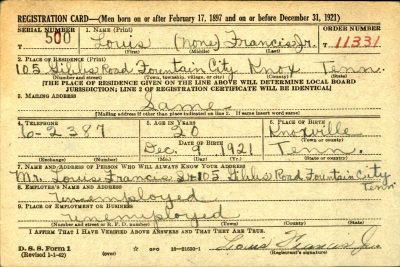 REGISTRATION CARD—(Men born on or after February 17, 1897 and on or before December 31, 1921)
SERIAL NUMBER 1. NAME (Print) ORDER NUMBER
500 Louis (None) Francis Jr. 11331
(First) (Middle) (Last)
2. PLACE OF RESIDENCE (Print)
105 Gibbs Road Fountain City Knox Tenn.
(Number and street) (Town, township, village, or city) (County) (State)
[THE PLACE OF RESIDENCE GIVEN ON THE LINE ABOVE WILL DETERMINE LOCAL BOARD
JURISDICTION; LINE 2 OF REGISTRATION CERTIFICATE WILL BE IDENTICAL]
3. MAILING ADDRESS
Same
[Mailing address if other than place indicated on line 2. If same insert word same]
4. TELEPHONE 5. AGE IN YEARS 6. PLACE OF BIRTH
6-2387 20 Knoxville
DATE OF BIRTH (Town or county)
Dec. 9 1921 Tenn.
(Exchange) (Number) (Mo.) (Day) (Yr.) (State or country)
7. NAME AND ADDRESS OF PERSON WHO WILL ALWAYS KNOW YOUR ADDRESS
Mr. Louis Francis Sr 105 Gibbs Road Fountain City
Tenn
8. EMPLOYER'S NAME AND ADDRESS
Unemployed
9. PLACE OF EMPLOYMENT OR BUSINESS
Unemployed
(Number and street or R. F. D. number) (Town) (County) (State)
I AFFIRM THAT I HAVE VERIFIED ABOVE ANSWERS AND THAT THEY ARE TRUE.
D. S. S. Form 1 GPO 16—21630-1 Louis Francis Jr.
(Revised 1-1-42) (Registrant's signature)